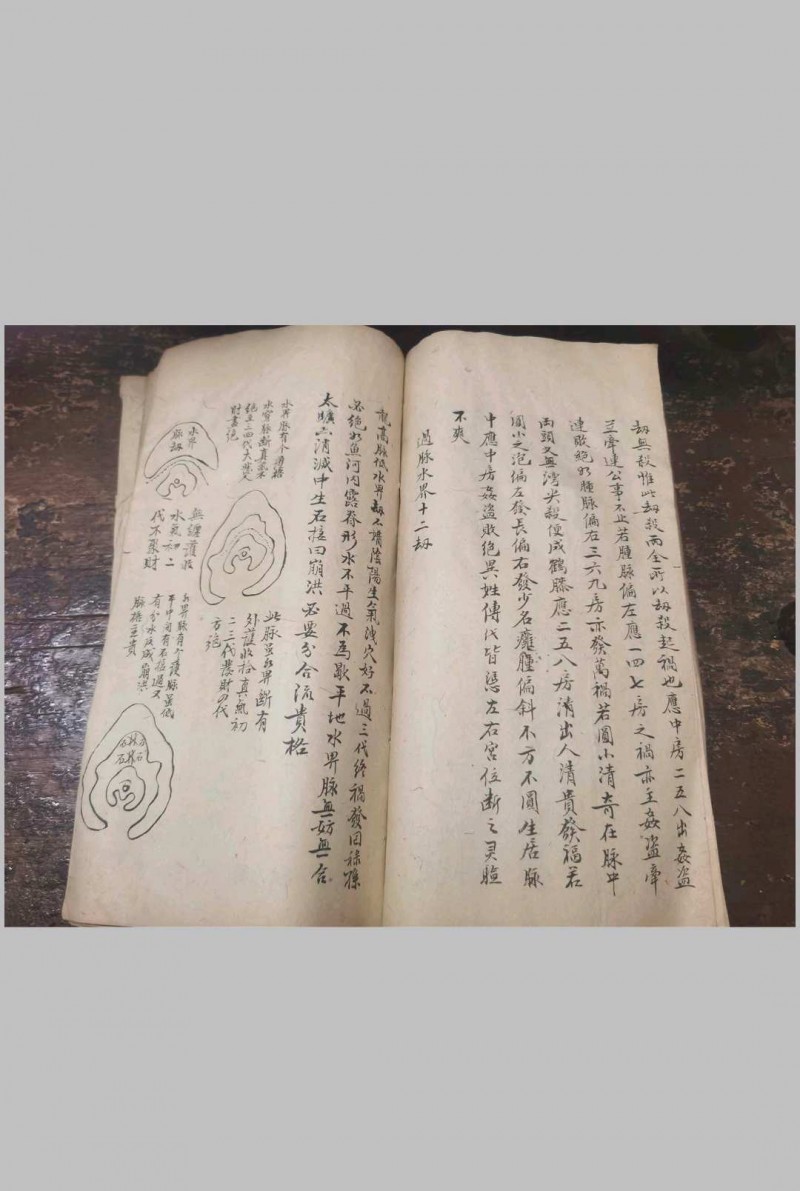 劫無殺惟此劫殺兩全所以劫殺起禍也應中房二五八出姦盜
三牽連公事不止若腫脉偏左應一四七房之禍亦主姦盜牽
連敗絕水腫脉偏右三六九房亦發萬禍若圓小清奇在脉中
兩頭又無灣尖殺便成鶴膝應二五八房清出人清貴發福若
圓小之泡偏左發長偏右發少名癰腫偏斜不方不圓生居脉
中應中房姦盜敗絕異姓傳代皆憑左右宮位斷之灵驗
不爽
過脉水界十二劫
龍高脉低水界劫不構陰陽生氣洩穴好不過三代終禍發回祿縣
必絕水魚河內露脊形水不平過不為欺平地水界脉無妨無合
太曠亦消滅中生石括曰崩洪必要分合流貴格
水界脉有个
水穿脉斷真氣
絕主三四代大發
財盡絕
水界
脉劫
無纏護收
水氣初二
代不聚財
此脉虽水界斷有
外護收拾真氣初
二三代發財四代
方絕
水界脉有个護脉虽低
平中有石過又
有分水反成崩洪
脉格主貴